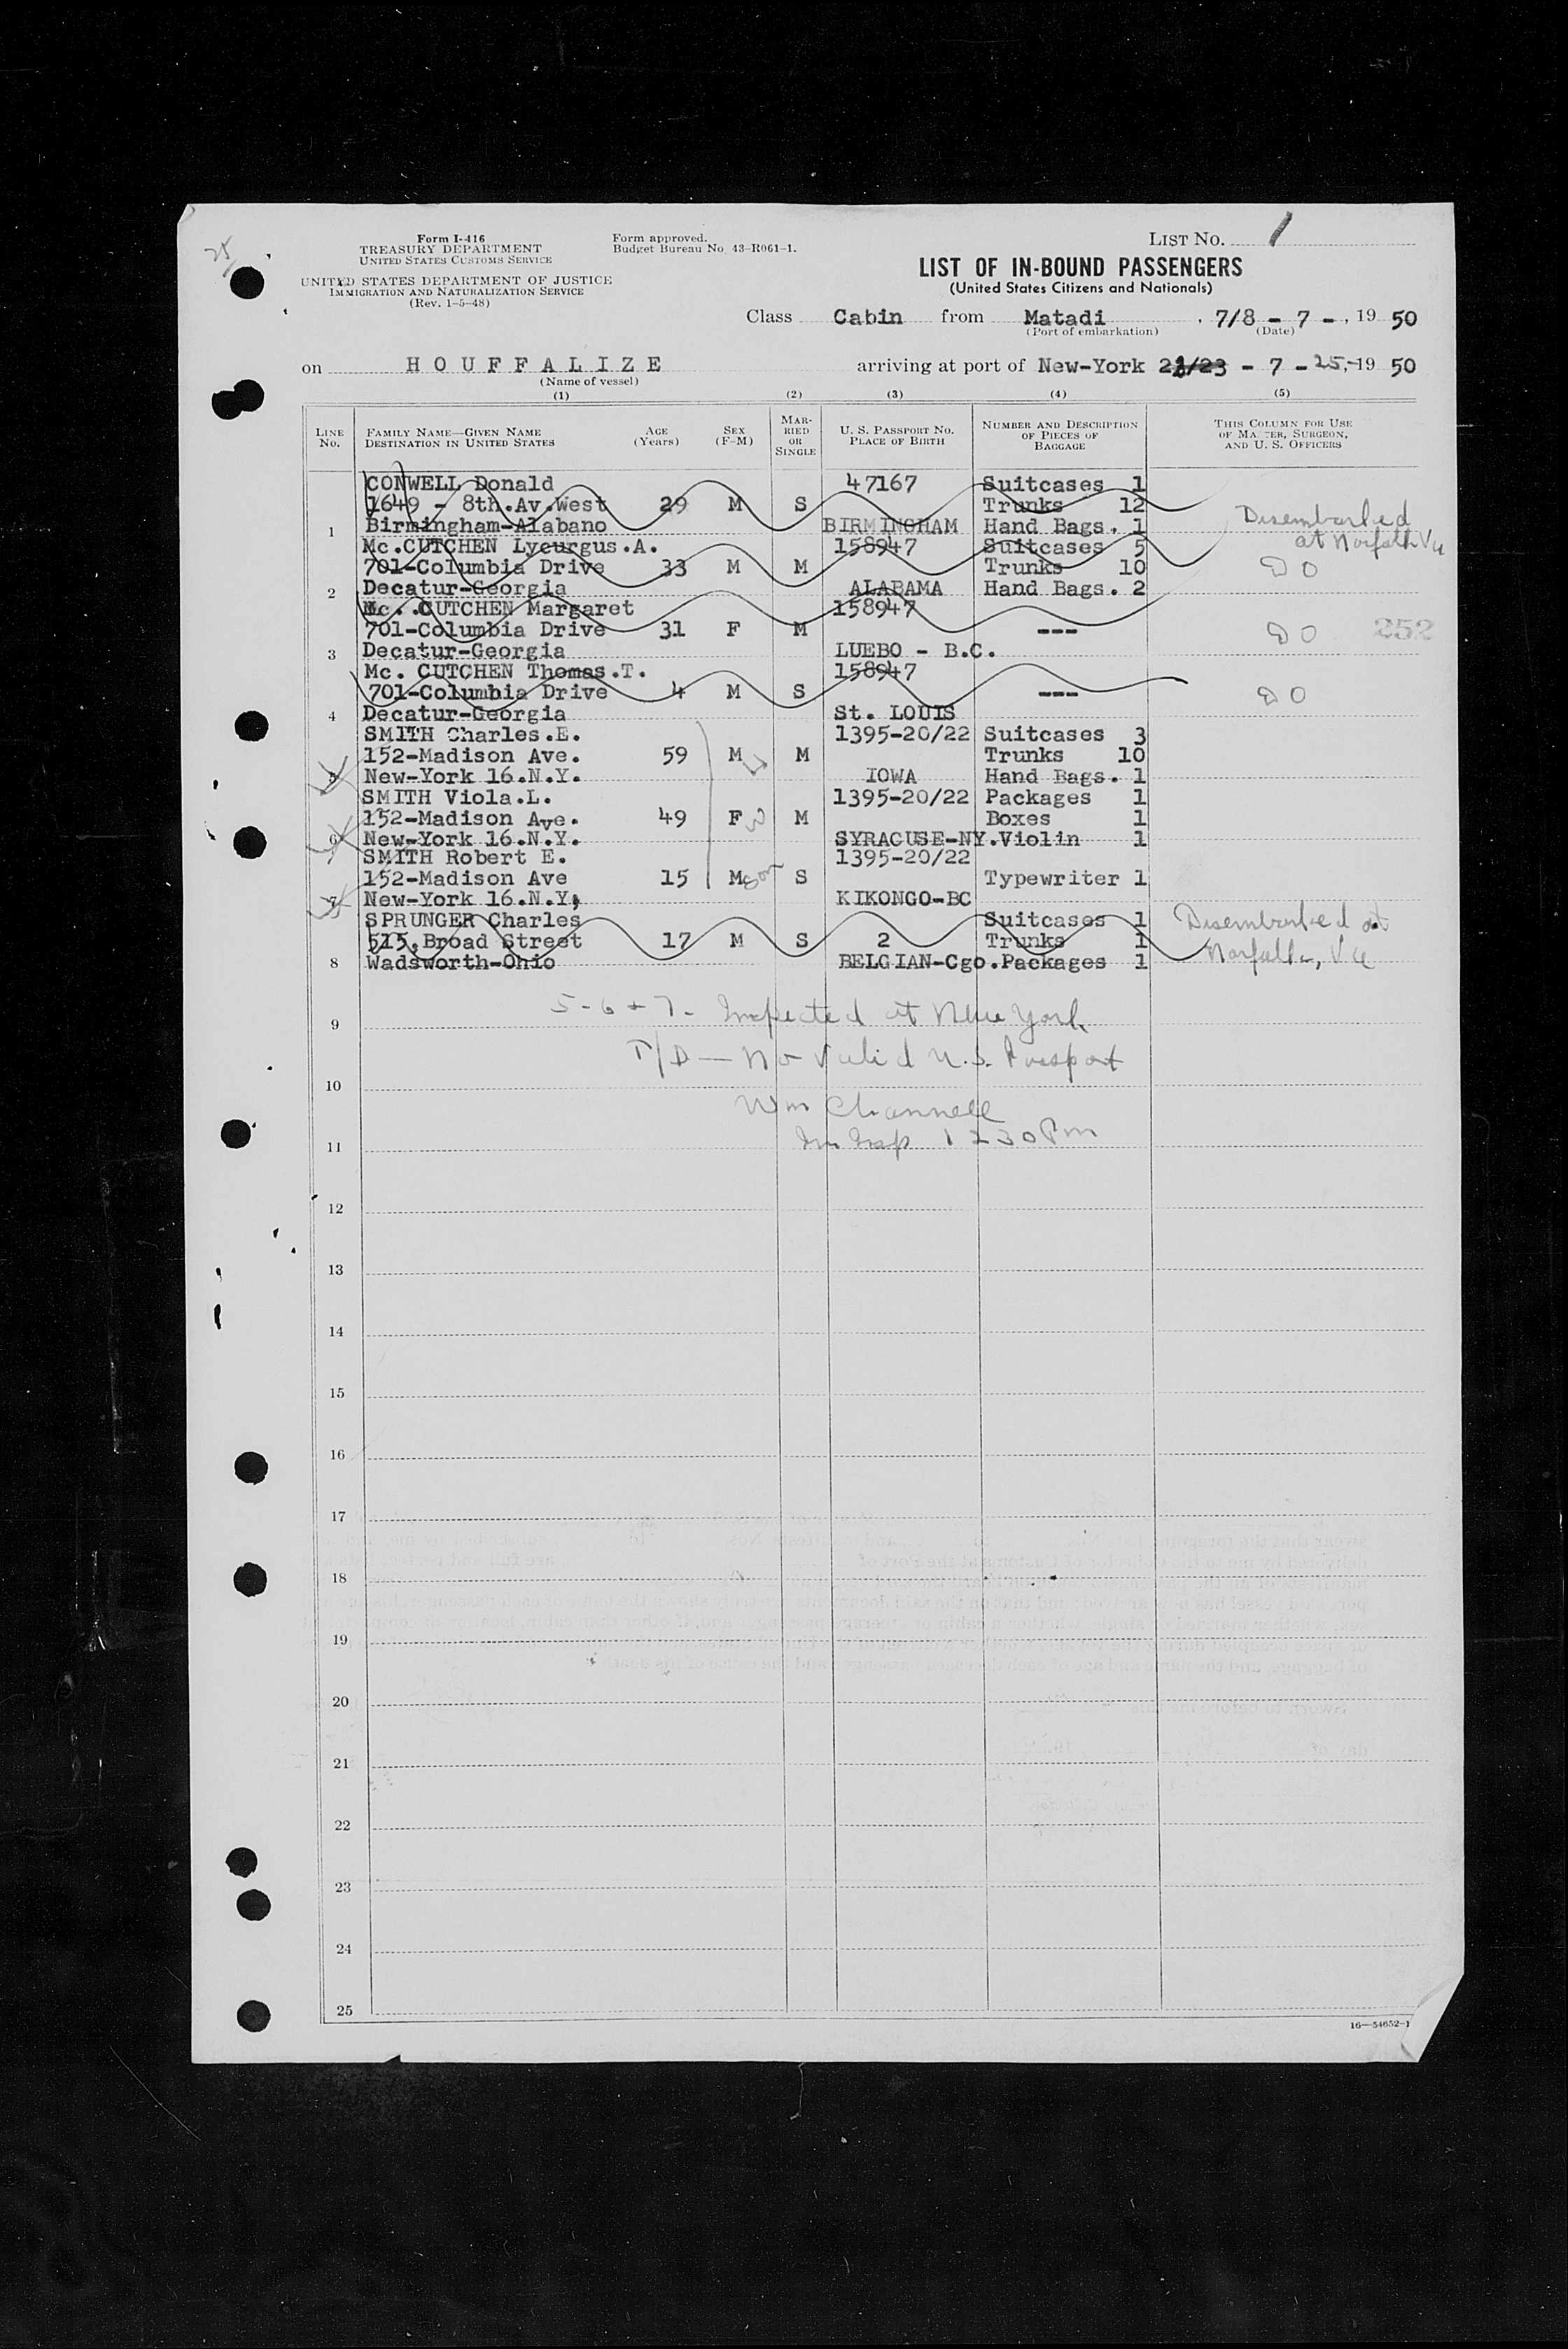 25
Form I-416
TREASURY DEPARTMENT
UNITED STATES CUSTOMS SERVICE
UNITED STATES DEPARTMENT OF JUSTICE
IMMIGRATION AND NATURALIZATION SERVICE
(Rev. 1-5-48)
Form approved.
Budget Bureau No. 43-R061-1.
LIST NO. 1
LIST OF IN-BOUND PASSENGERS
(United States Citizens and Nationals)
Class Cabin from Matadi , 7/8 - 7 - , 19 50
(Port of embarkation) (Date)
on HOUFFALIZE arriving at port of New-York - 7 - 25, 19 50
(Name of vessel)
(1) (2) (3) (4) (5)
LINE NO.
FAMILY NAME—GIVEN NAME
DESTINATION IN UNITED STATES
AGE
(Years)
SEX
(F-M)
MAR-
RIED
OR
SINGLE
U. S. PASSPORT NO.
PLACE OF BIRTH
NUMBER AND DESCRIPTION
OF PIECES OF
BAGGAGE
THIS COLUMN FOR USE
OF MASTER, SURGEON,
AND U. S. OFFICERS
CONWELL Donald 47167 Suitcases 1
1649 - 8th.Av.West 29 M S Trunks 12
1 Birmingham-Alabano BIRMINGHAM Hand Bags. 1
Disembarked
at Norfolk Va
Mc.CUTCHEN Lycurgus.A. 158947 Suitcases 5
701-Columbia Drive 33 M M Trunks 10 DO
2 Decatur-Georgia ALABAMA Hand Bags. 2
Mc. CUTCHEN Margaret 158947
701-Columbia Drive 31 F M --- DO 252
3 Decatur-Georgia LUEBO - B.C.
Mc. CUTCHEN Thomas.T. 158947
701-Columbia Drive 4 M S --- DO
4 Decatur-Georgia St. LOUIS
SMITH Charles.E. 1395-20/22 Suitcases 3
152-Madison Ave. 59 M M Trunks 10
5 New-York 16.N.Y. IOWA Hand Bags. 1
SMITH Viola.L. 1395-20/22 Packages 1
152-Madison Ave. 49 F W M Boxes 1
6 New-York 16.N.Y. SYRACUSE-NY. Violin 1
SMITH Robert E. 1395-20/22
152-Madison Ave 15 M Son S Typewriter 1
7 New-York 16.N.Y, KIKONGO-BC
SPRUNGER Charles Suitcases 1
515,Broad Street 17 M S 2 Trunks 1
8 Wadsworth-Ohio BELGIAN-Cgo. Packages 1
Disembarked at
Norfolk, Va
5-6+7- Inspected at New York
9
T/D — No valid U.S. Passport
10
Wm Channell
Im Insp 1230 Pm
11
12
13
14
15
16
17
18
19
20
21
22
23
24
25
16—54652-1